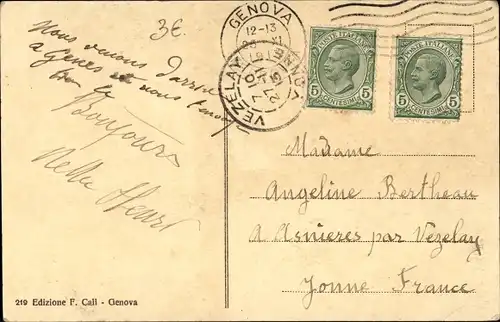 3€
Nous venons d'arri
a Genes et nous
Bonjours
GENOVA
12-13
VEZELAY
YONNE
POSTE ITALIANE
5 CENTESIMI 5
POSTE ITALIANE
5 CENTESIMI 5
Madame
Angeline Bertheau
a Asnieres par Vezelay
Yonne France
219 Edizione F. Cali - Genova